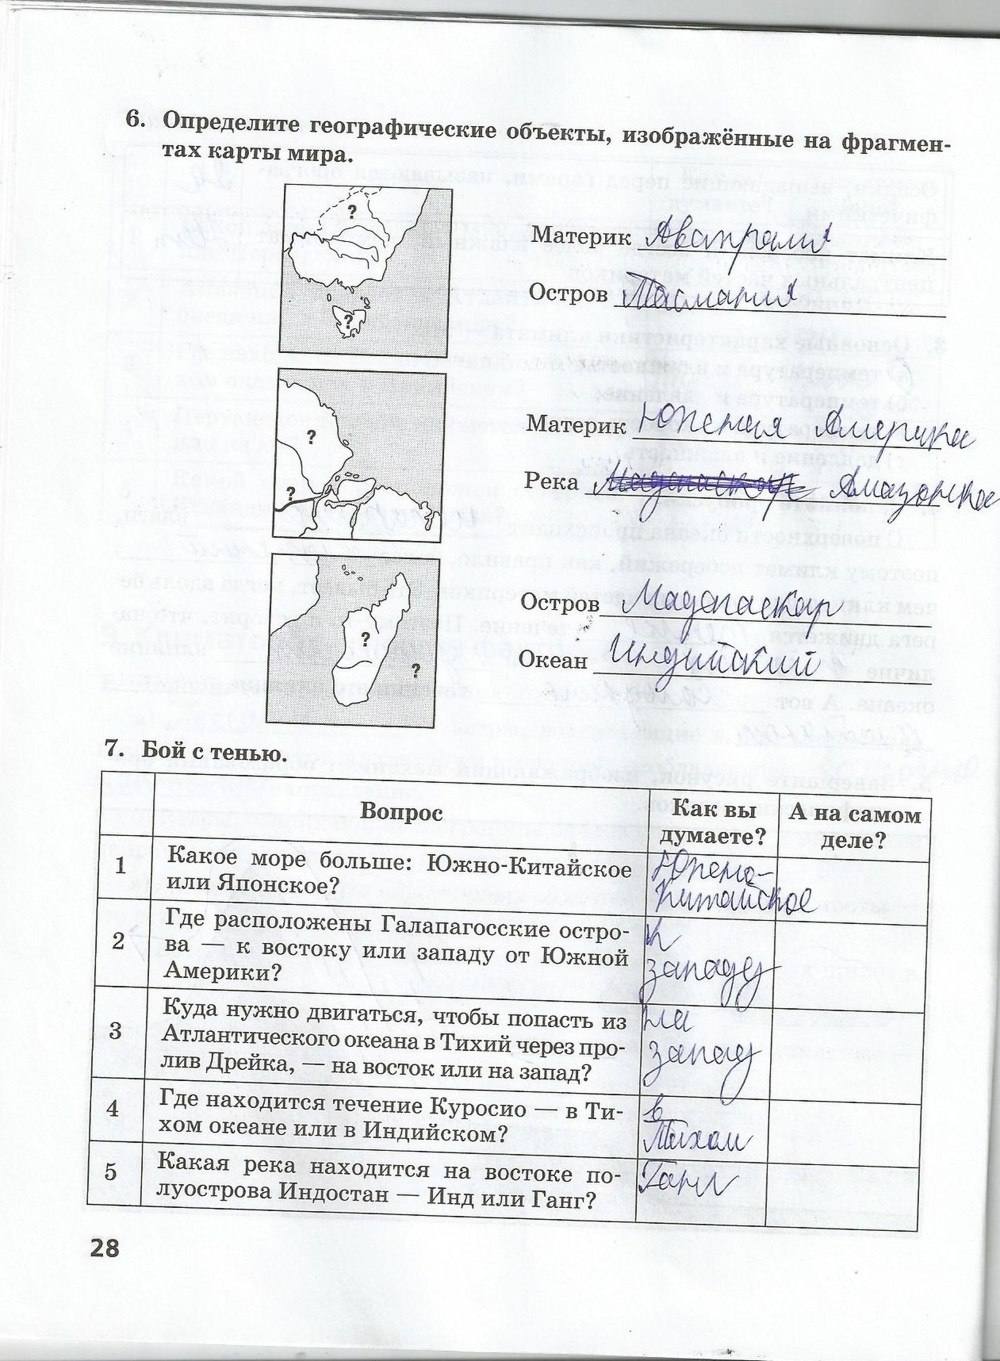 6. Определите географические объекты, изображённые на фрагмен-
тах карты мира.
?
?
Материк Австралия
Остров Тасмания
?
?
Материк Южная Америка
Река Амазонка
?
?
Остров Мадагаскар
Океан Индийский
7. Бой с тенью.
Вопрос
Как вы думаете?
А на самом деле?
1
Какое море больше: Южно-Китайское
или Японское?
Южно-
Китайское
2
Где расположены Галапагосские остро-
ва — к востоку или западу от Южной
Америки?
к
западу
3
Куда нужно двигаться, чтобы попасть из
Атлантического океана в Тихий через про-
лив Дрейка, — на восток или на запад?
на
запад
4
Где находится течение Куросио — в Ти-
хом океане или в Индийском?
в
Тихом
5
Какая река находится на востоке по-
луострова Индостан — Инд или Ганг?
Ганг
28